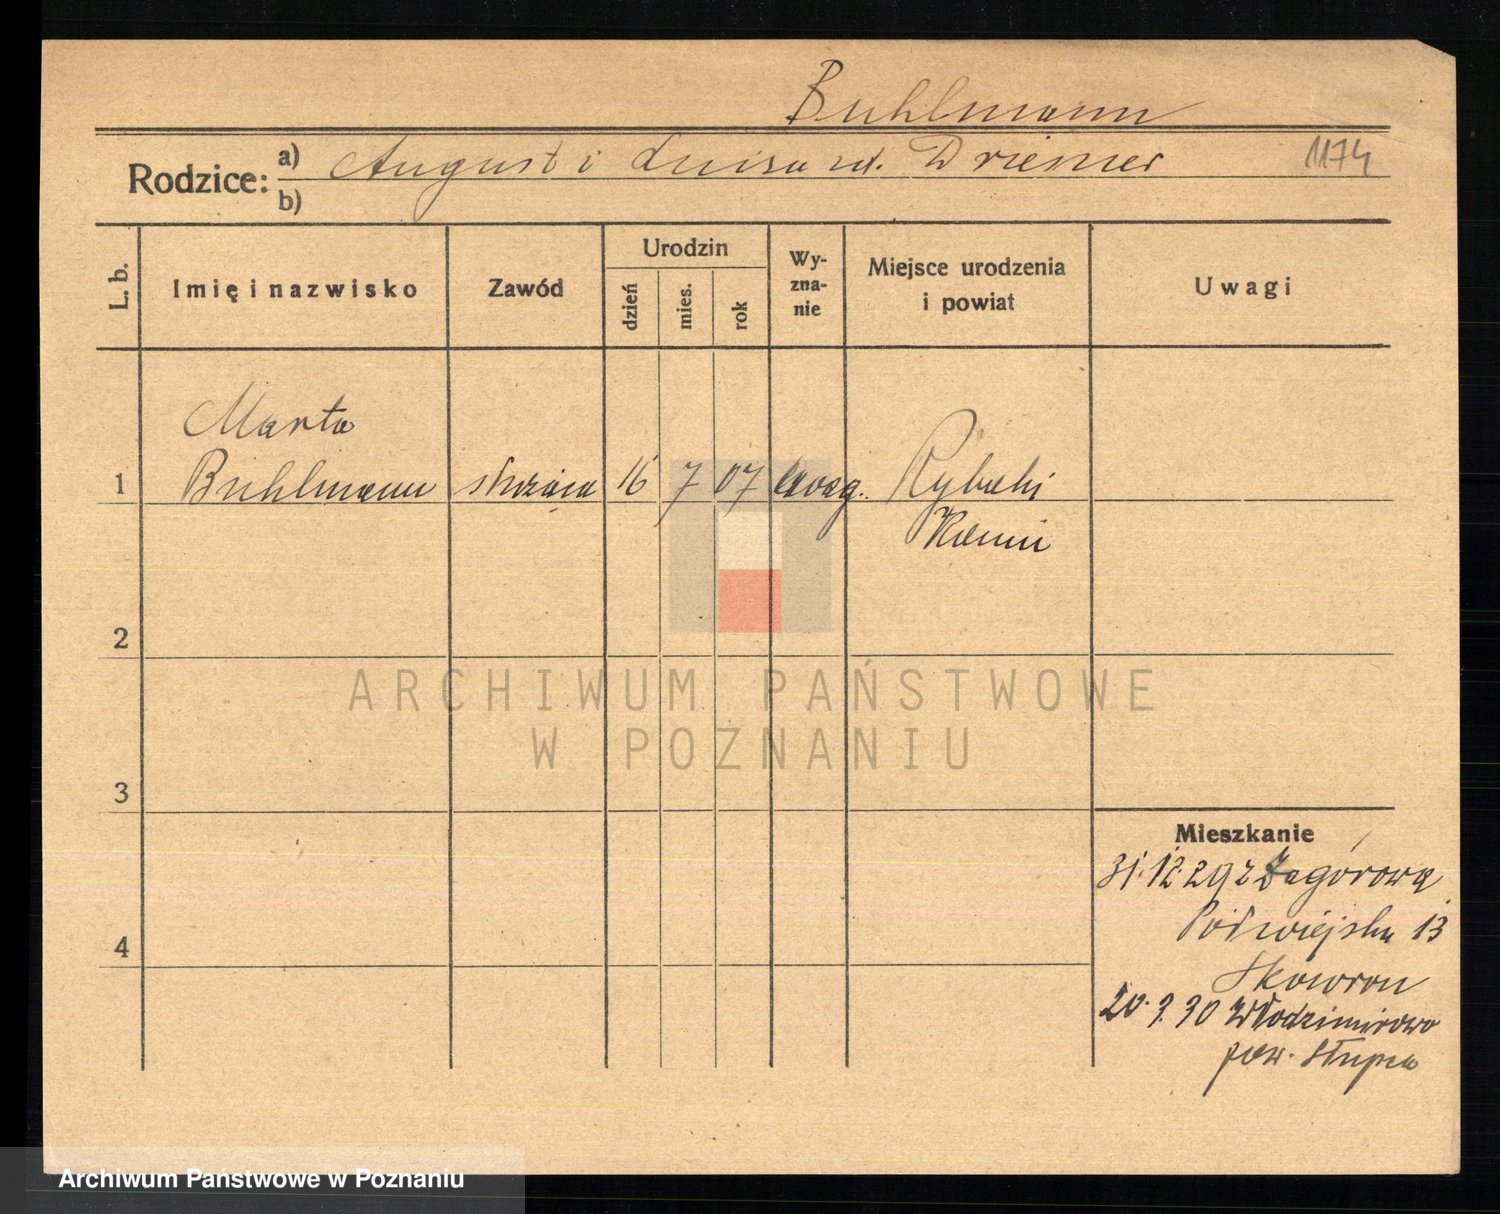 Buhlmann
Rodzice: a) August i Luisa ur. Driemer 1174
b)
L. b.
Imię i nazwisko
Zawód
Urodzin
dzień
mies.
rok
Wy-
zna-
nie
Miejsce urodzenia
i powiat
Uwagi
Marta
1 Buhlmann służąca 16 7 07 ewag. Rybaki
Konin
2
3
4
Mieszkanie
31.12.29 z Zagórowa
Półwiejska 13
Skowron
20.3.30 Włodzimirowo
pow. Słupca
ARCHIWUM PAŃSTWOWE
W POZNANIU
Archiwum Państwowe w Poznaniu